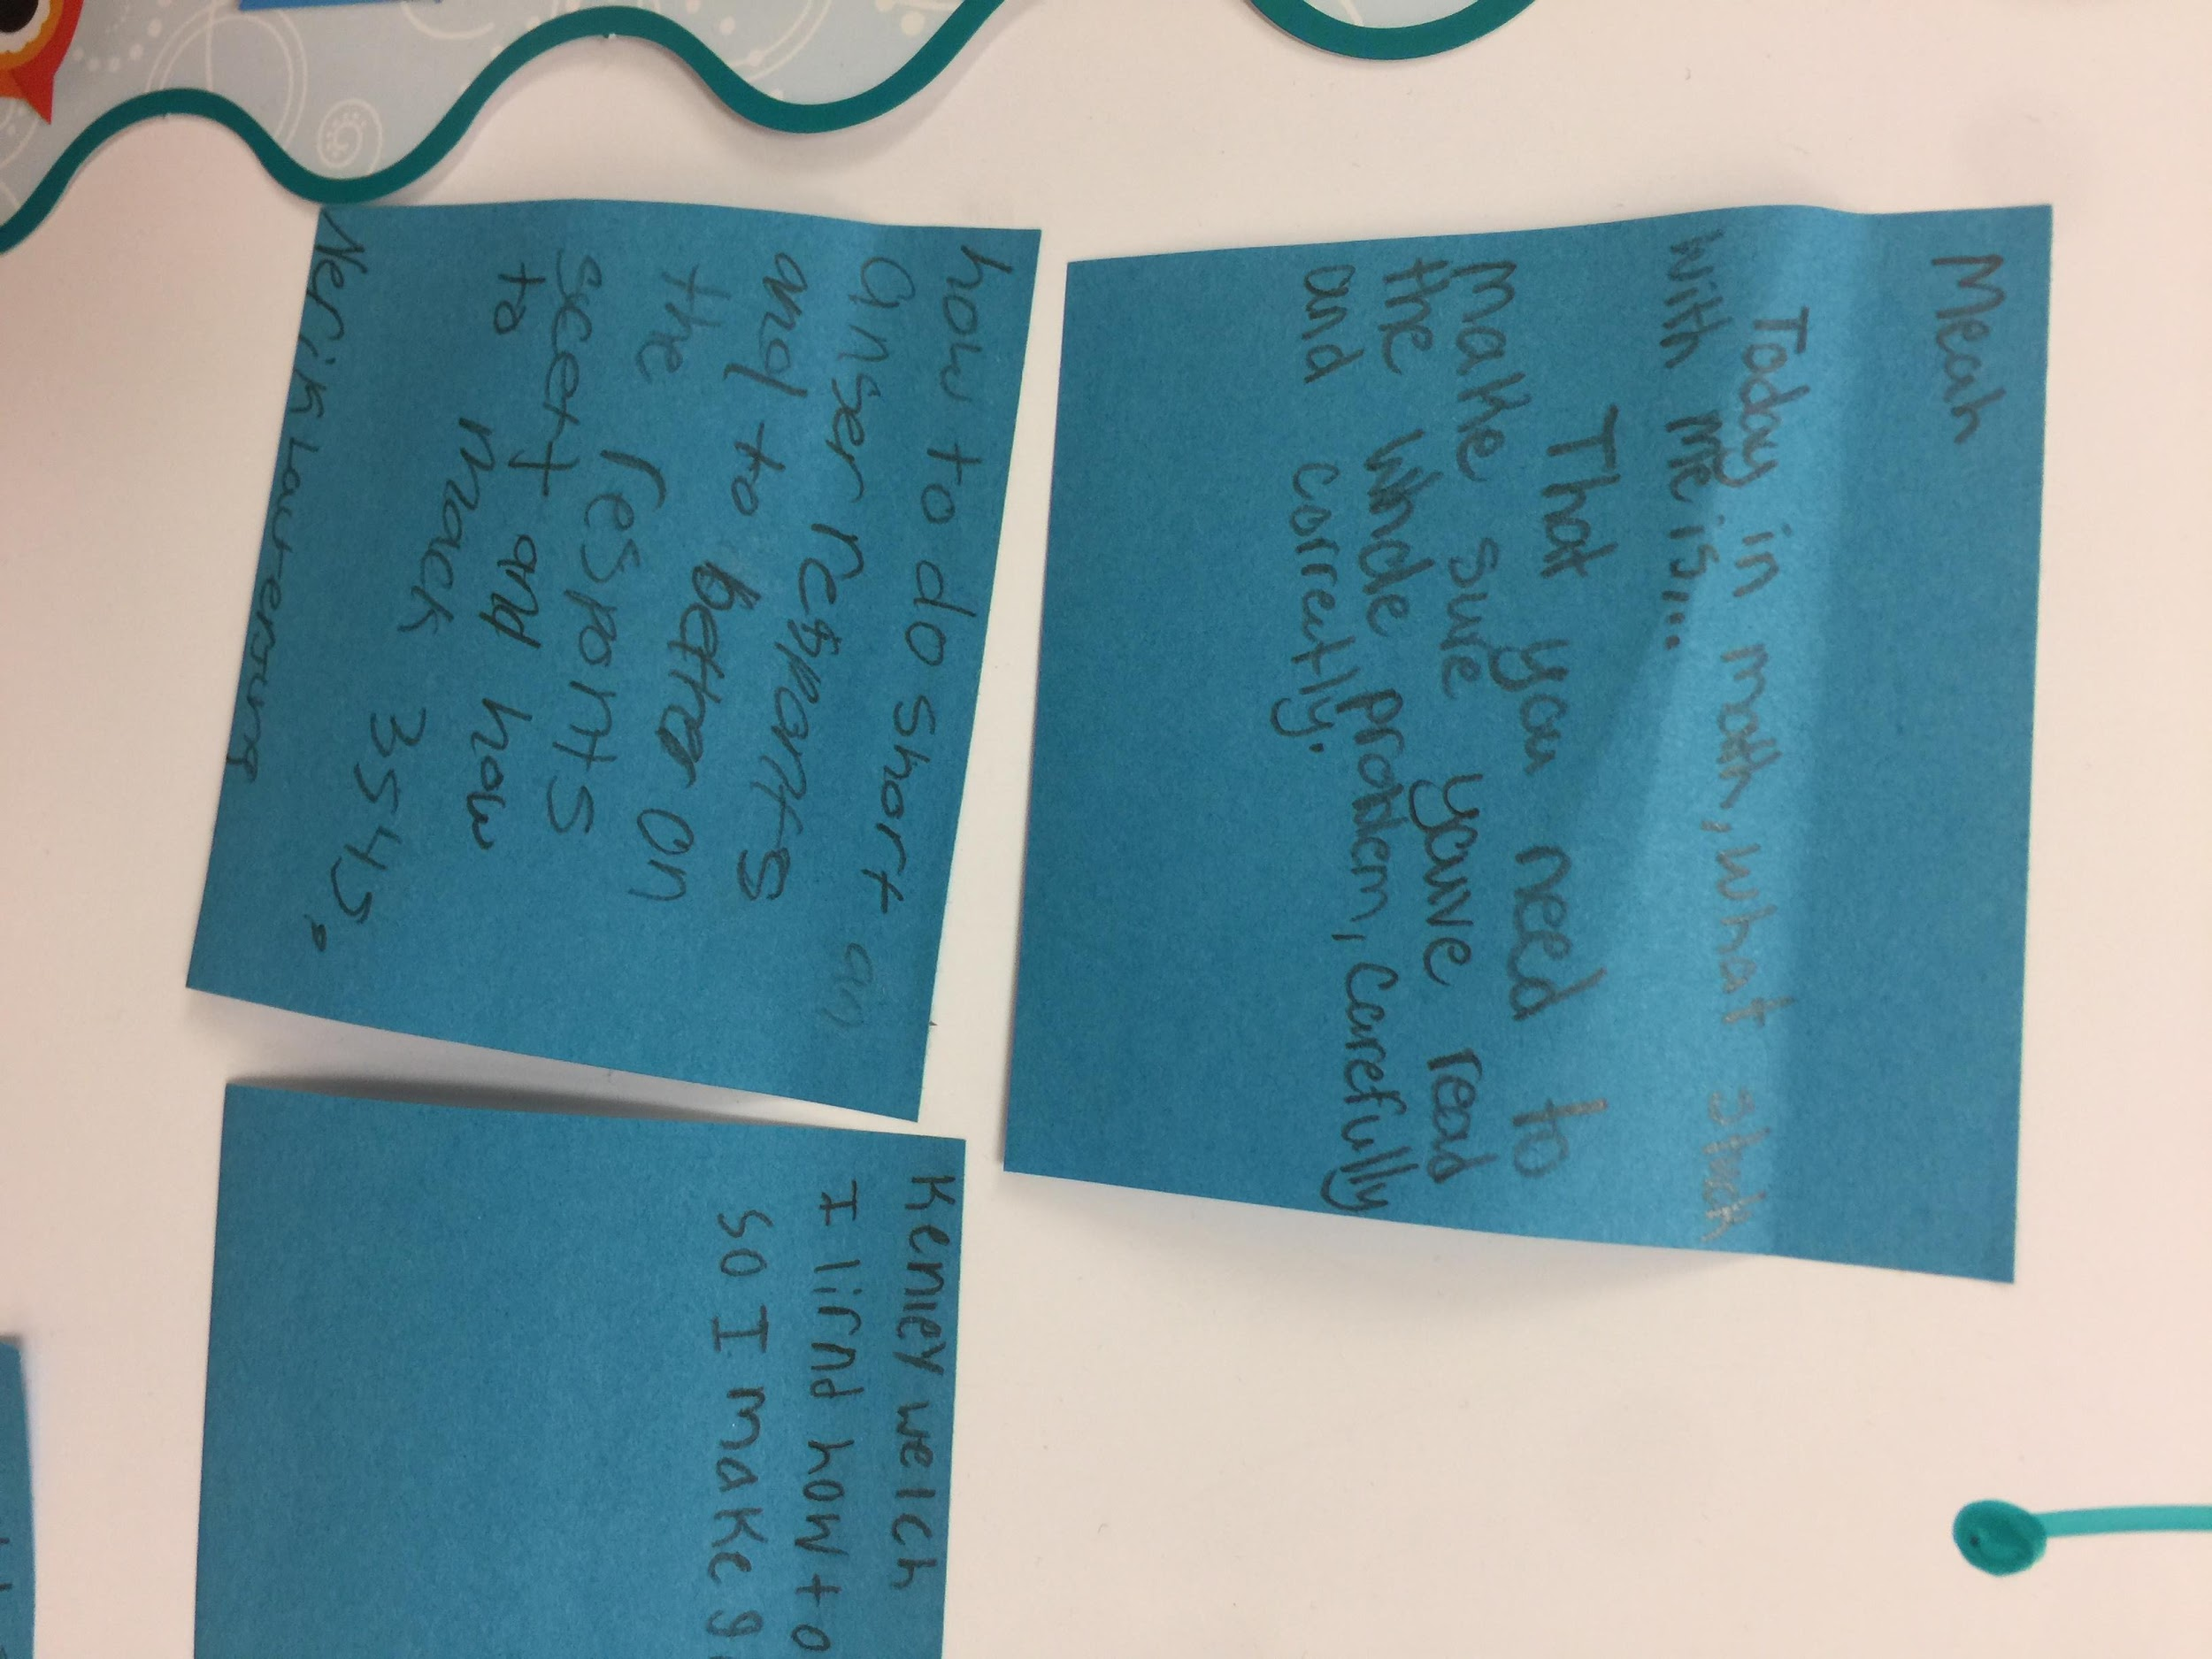 Meah
Today in math, what stuck
with me is....
That you need to
make sure youve read
the whole problem, carefully
and correctly.
how to do short
anser responts
any to better on
the responts
sceet and how
to mack
3s 4s.
Kenley welch
I lirnd how to
so I make